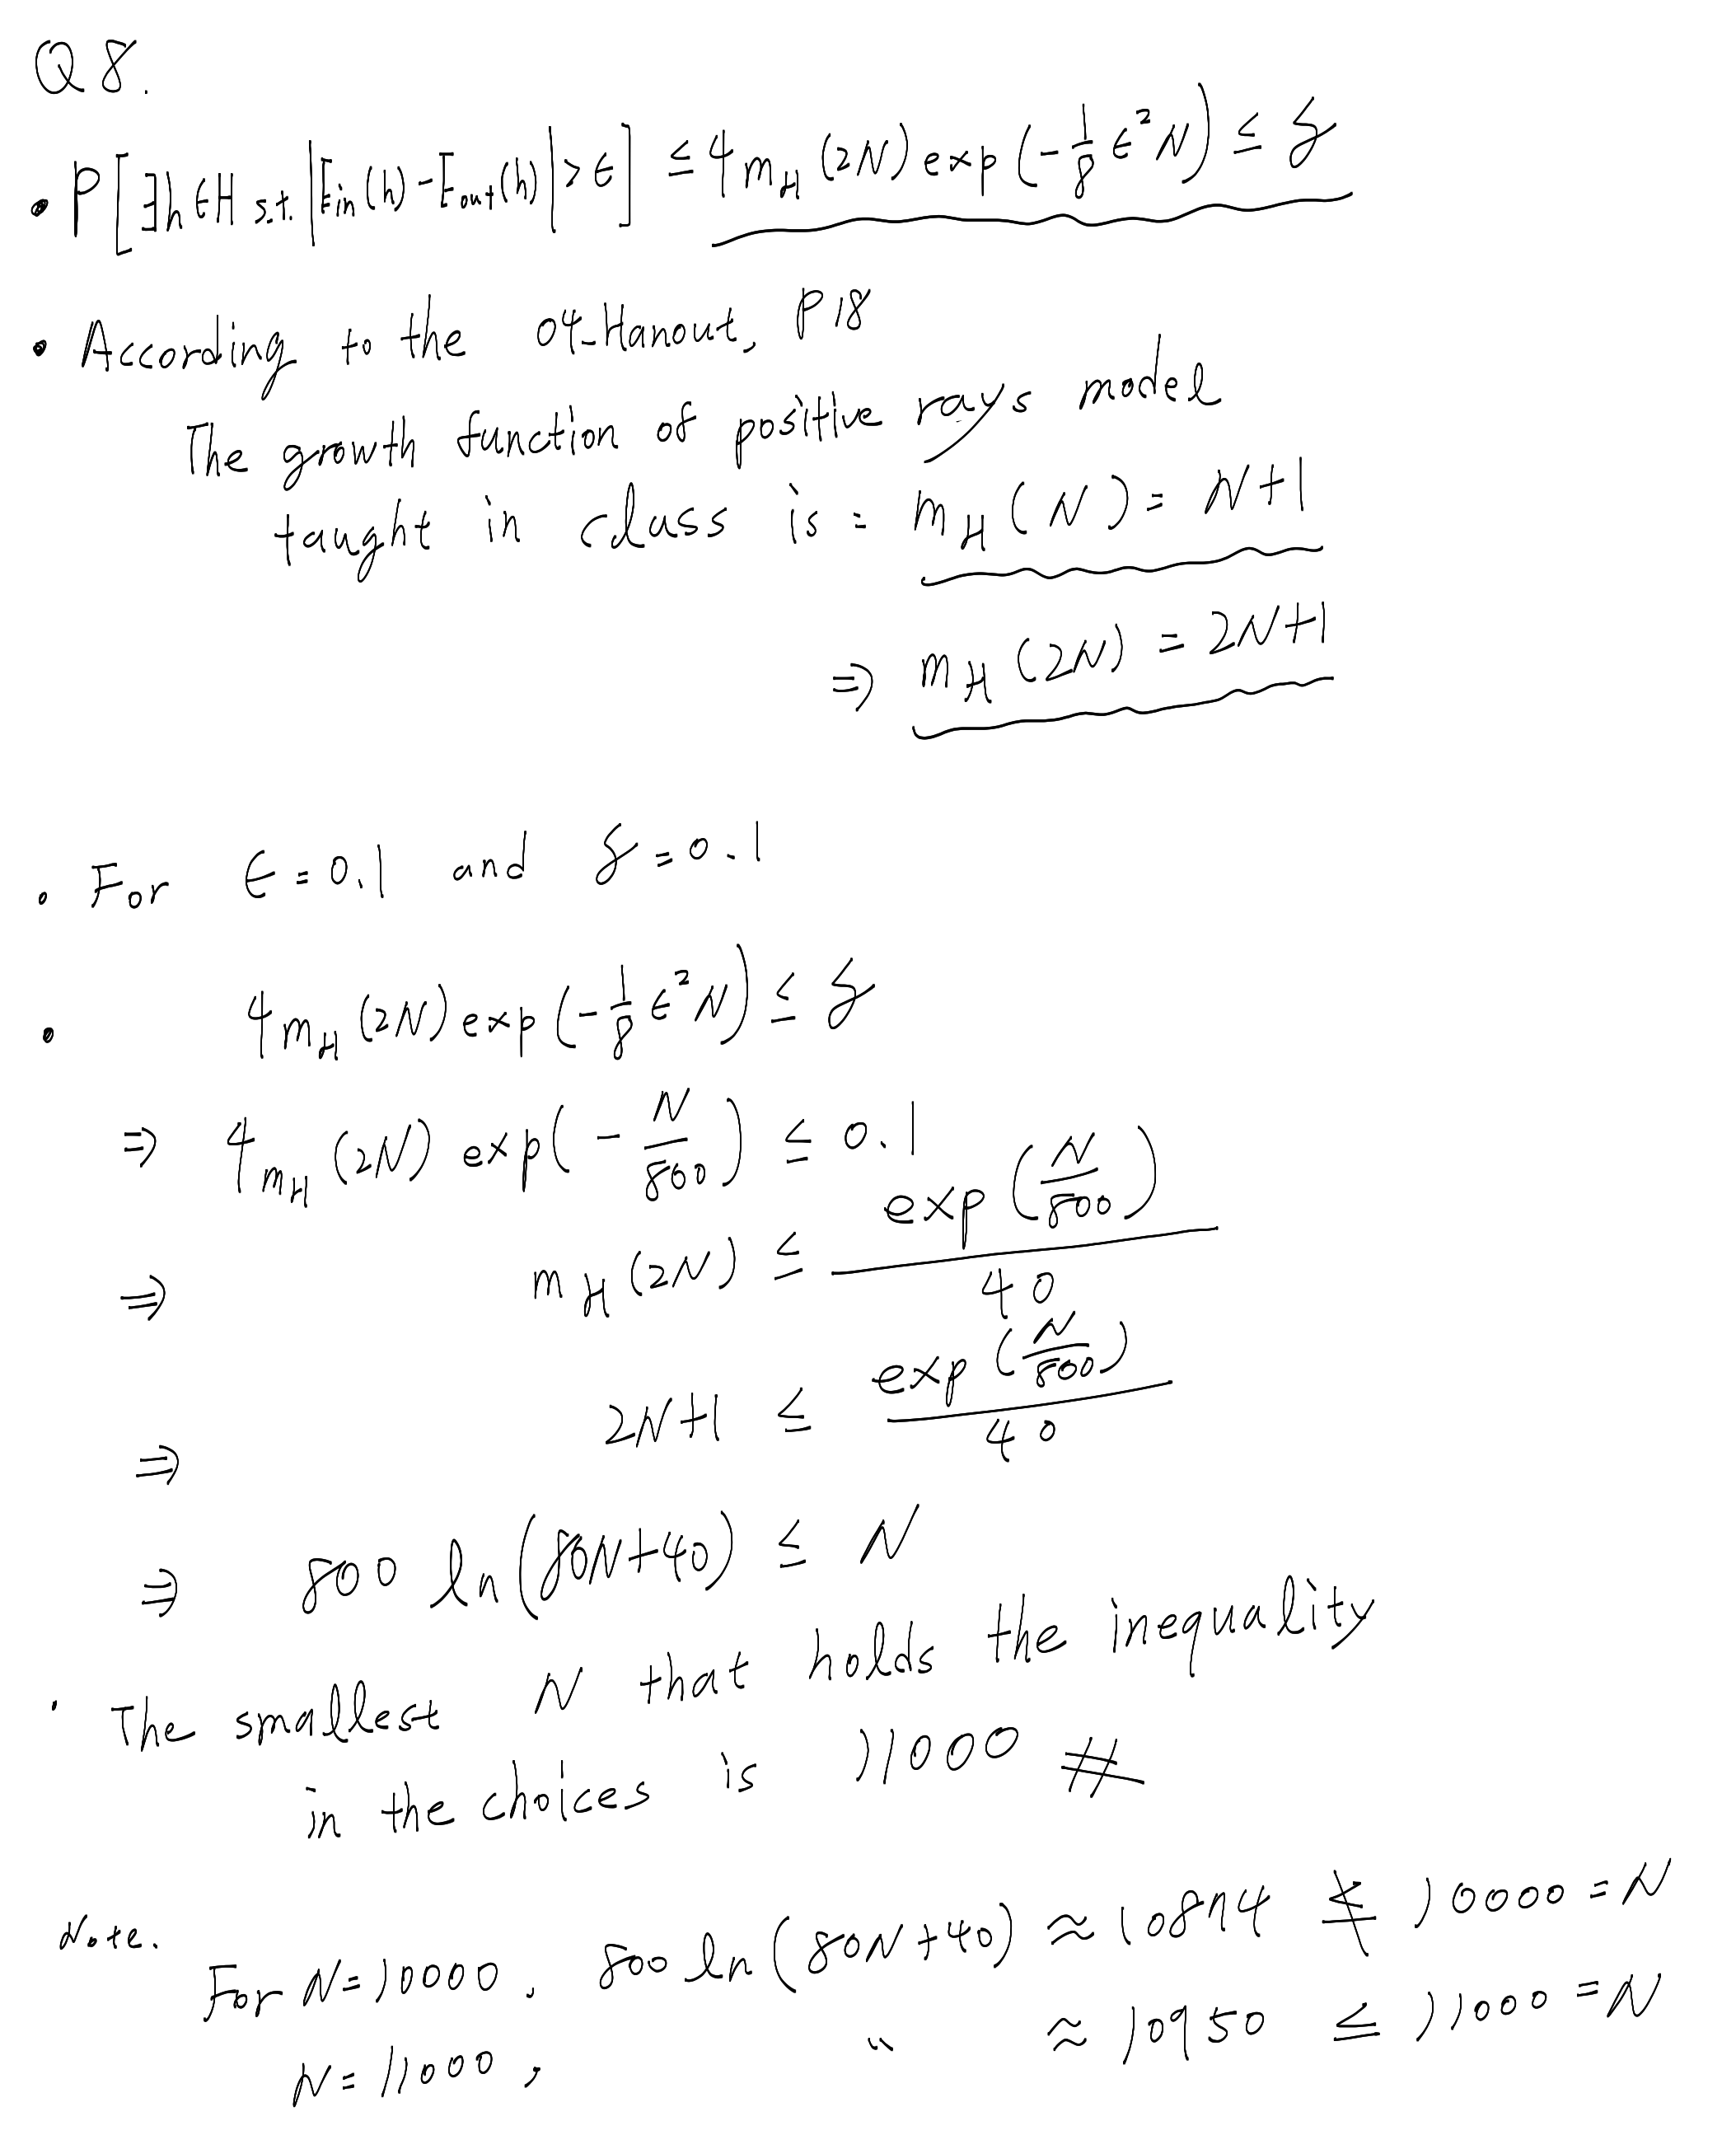 Q8.
• P[∃h∈H s.t. |Ein(h)-Eout(h)|>ϵ] ≤ 4mH(2N)exp(-1/8 ϵ²N) ≤ δ
• According to the 04-Hanout, P18
The growth function of positive rays model
taught in class is: mH(N)=N+1
⇒ mH(2N)=2N+1
• For ϵ=0.1 and δ=0.1
• 4mH(2N)exp(-1/8 ϵ²N) ≤ δ
⇒ 4mH(2N)exp(-N/800) ≤ 0.1
⇒ mH(2N) ≤ exp(N/800)/40
⇒ 2N+1 ≤ exp(N/800)/40
⇒ 800 ln(80N+40) ≤ N
· The smallest N that holds the inequality
in the choices is 11000 #
Note.
For N=10000, 800 ln(80N+40) ≈ 10874 ≰ 10000=N
N=11000, " ≈ 10950 ≤ 11000=N